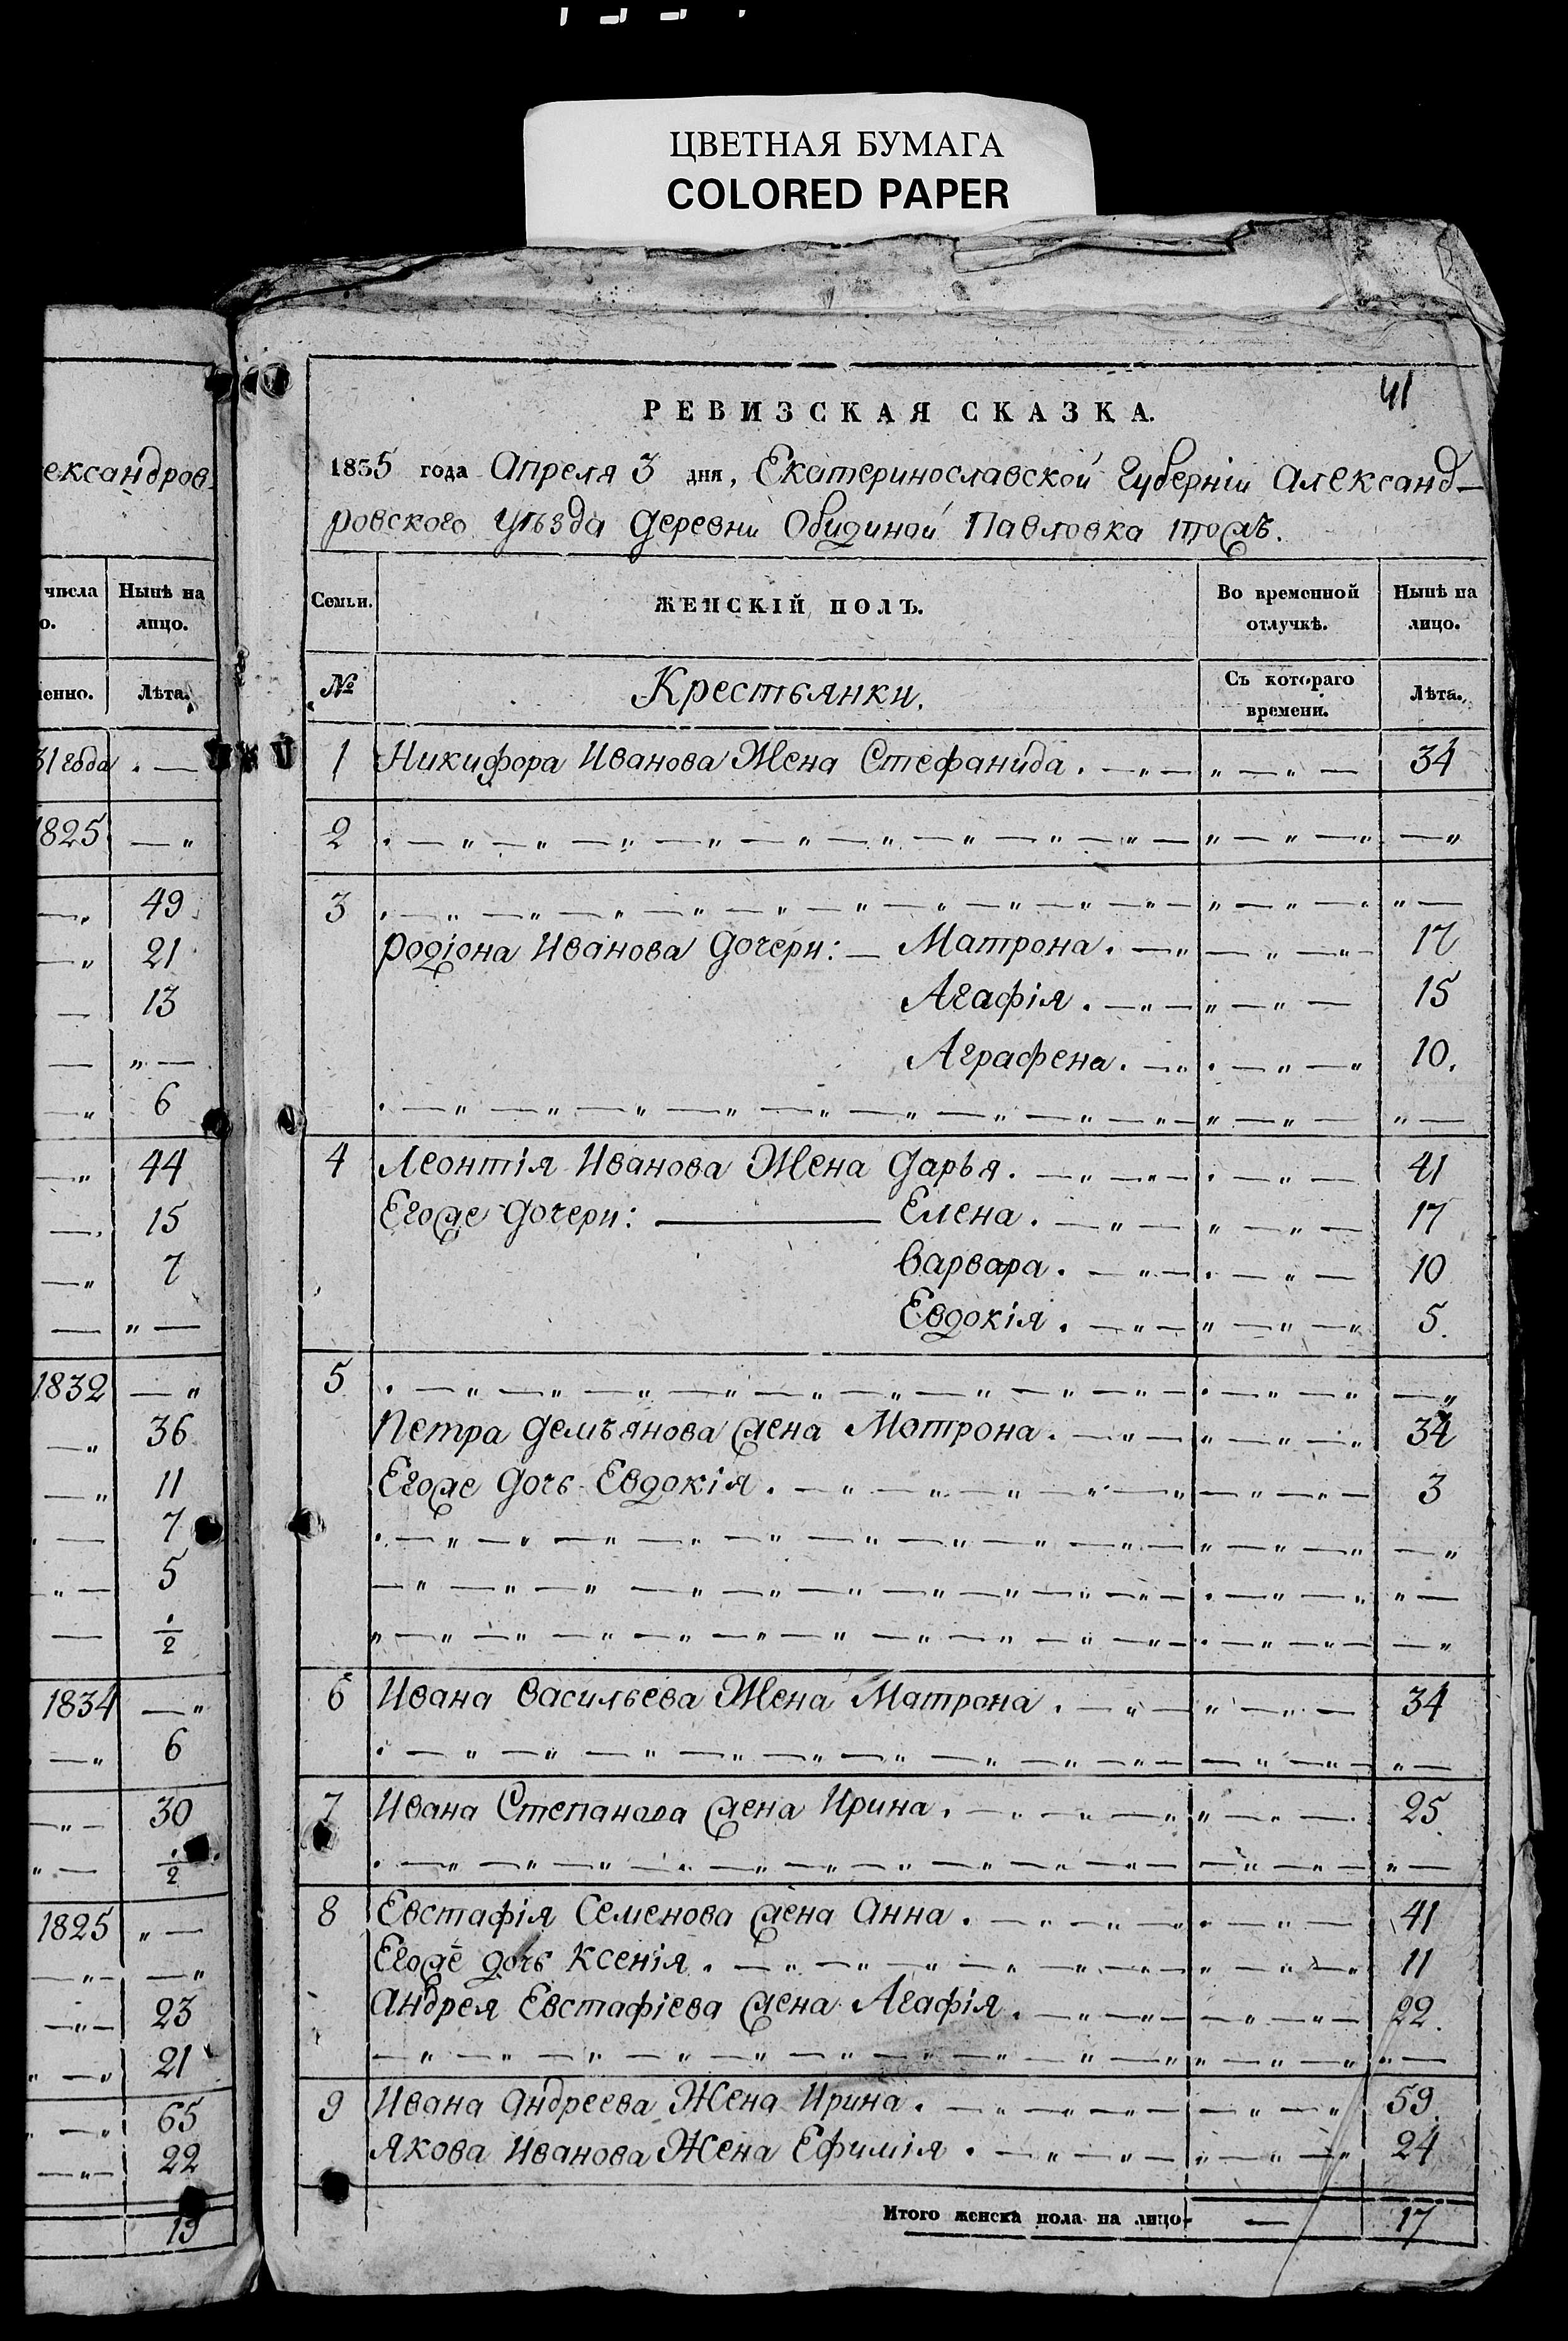 ЦВЕТНАЯ БУМАГА
COLORED PAPER
ександров-
числа Нынѣ на
о. лицо.
Лѣта.
31 года
1825
49
21
13
6
44
15
7
1832
36
11
7
5
1/2
1834
6
30
1/2
1825
23
21
65
22
19
41
РЕВИЗСКАЯ СКАЗКА.
1835 года Апреля 3 дня, Екатеринославской Губерніи Александ-
ровского уѣзда деревни Обидиной Павловка тожъ.
Семьи. ЖЕНСКІЙ ПОЛЪ. Во временной отлучкѣ. Нынѣ на лицо.
№ Крестьянки. Съ котораго времени. Лѣта.
1 Никифора Иванова Жена Стефанида. 34
2
3
Родіона Иванова дочери: Матрона. 17
Агафія. 15
Аграфена. 10.
4 Леонтія Иванова Жена Дарья. 41
Егоже дочери: Елена. 17
Варвара. 10
Евдокія. 5.
5
Петра Демьянова жена Мотрона. 34
Егоже дочь Евдокія. 3
6 Ивана Васильева Жена Матрона. 34
7 Ивана Степанова жена Ирина. 25
8 Евстафія Семенова жена Анна. 41
Егоже дочь Ксенія. 11
Андрея Евстафіева жена Агафія. 22.
9 Ивана Андреева Жена Ирина. 59
Якова Иванова Жена Ефимія. 24
Итого женска пола на лицо 17